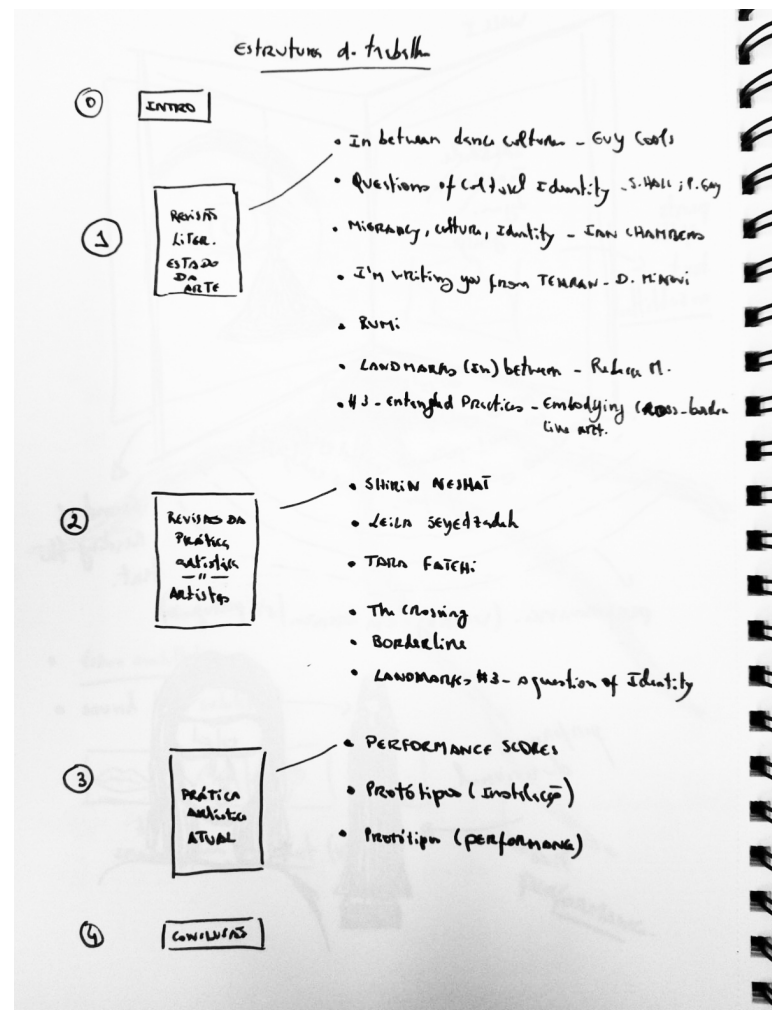 Estrutura de trabalho
0 INTRO
1 Revisão
Liter.
ESTADO
DA
ARTE
• In between dance cultures - Guy Cools
• Questions of Cultural Identity - S. Hall ; P. Gay
• Migrancy, culture, Identity - Ian Chambers
• I'm writing you from TEHRAN - D. Minovi
• RUMI
• LANDMARKS (In) between - Rebeca M.
• #3 - Entangled Practices - Embodying cross-border
live art.
2 Revisão DA
Prática
artística
—"—
Artistas
• SHIRIN NESHAT
• Leila Seyedzadeh
• TARA FATEHI
• The Crossing
• Borderline
• LANDMARKS #3 - A question of Identity
3 PRÁTICA
Artística
ATUAL
• PERFORMANCE SCORES
• Protótipos (Instalação)
• Protótipos (performance)
4 CONCLUSÃO
performance